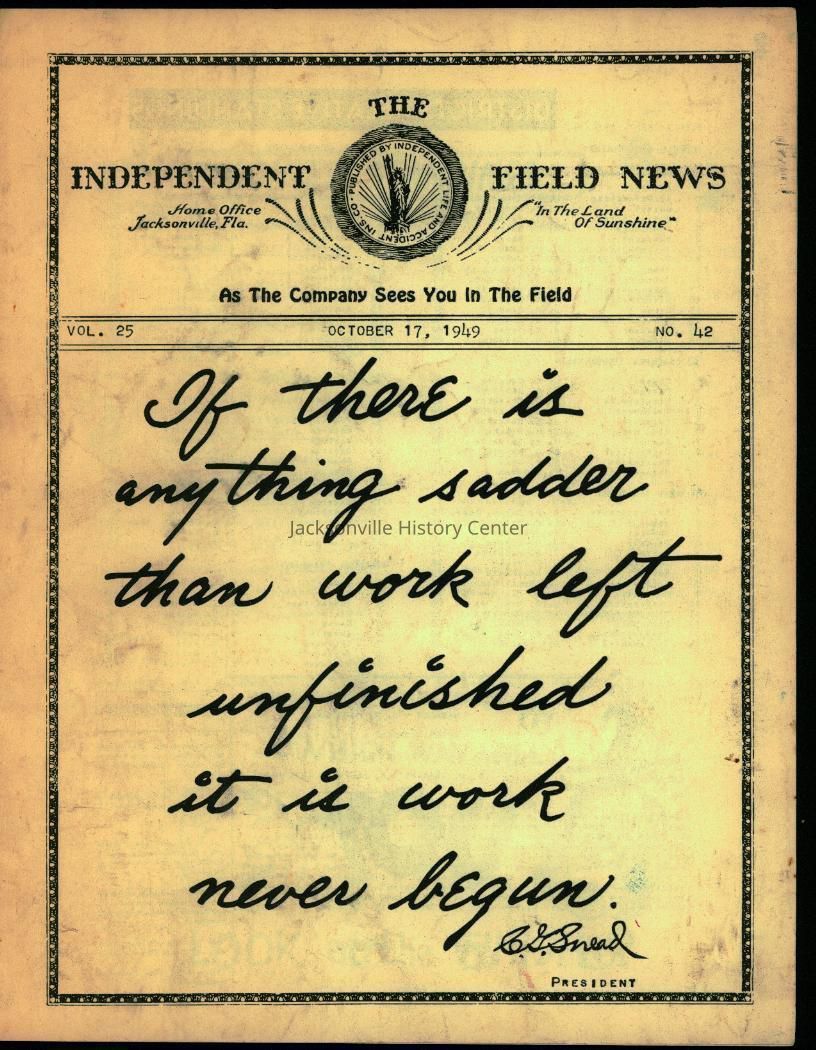 THE
INDEPENDENT FIELD NEWS
PUBLISHED BY INDEPENDENT LIFE AND ACCIDENT INS. CO.
Home Office
Jacksonville, Fla.
"In The Land
Of Sunshine"
As The Company Sees You In The Field
VOL. 25 OCTOBER 17, 1949 NO. 42
If there is
anything sadder
Jacksonville History Center
than work left
unfinished
it is work
never begun.
C. G. Snead
PRESIDENT